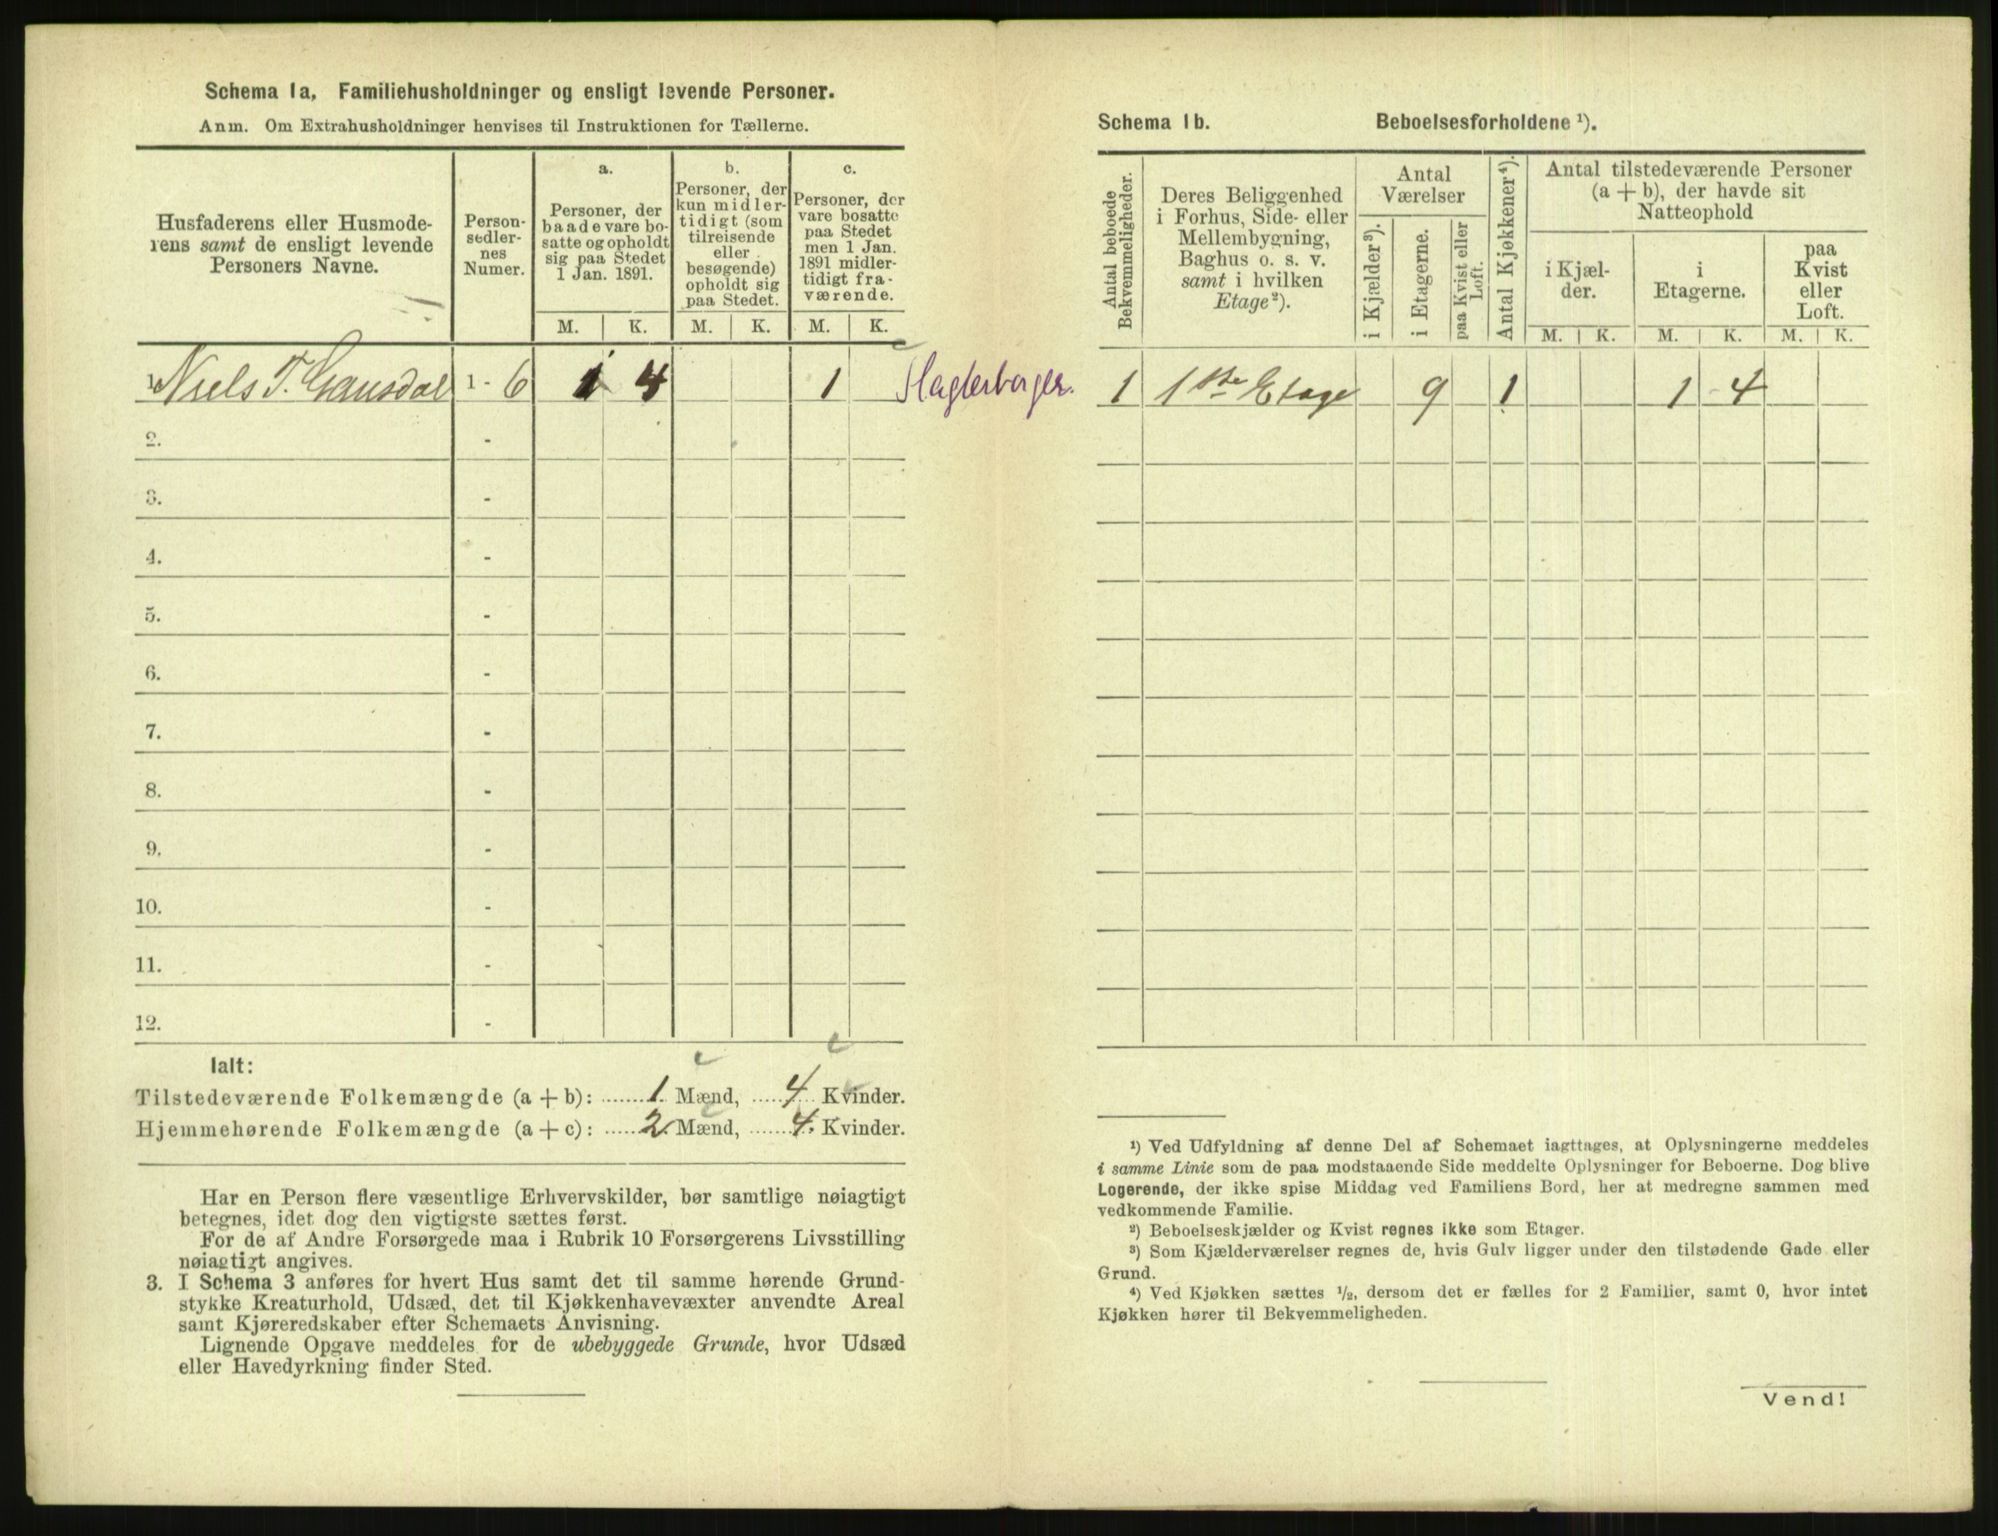 Schema 1a, Familiehusholdninger og ensligt levende Personer.
Anm. Om Extrahusholdninger henvises til Instruktionen for Tællerne.
Husfaderens eller Husmode-
rens samt de ensligt levende
Personers Navne.
Person-
sedler-
nes
Numer.
a.
Personer, der
baade vare bo-
satte og opholdt
sig paa Stedet
1 Jan. 1891.
b.
Personer, der
kun midler-
tidigt (som
tilreisende
eller
besøgende)
opholdt sig
paa Stedet.
c.
Personer, der
vare bosatte
paa Stedet
men 1 Jan.
1891 midler-
tidigt fra-
værende.
M. K. M. K. M. K.
1. Niels T. Gausdal 1 - 6 1 4 1 Slagterborger.
2. -
3. -
4. -
5. -
6. -
7. -
8. -
9. -
10. -
11. -
12. -
Ialt:
Tilstedeværende Folkemængde (a + b): 1 Mænd, 4 Kvinder.
Hjemmehørende Folkemængde (a + c): 2 Mænd, 4 Kvinder.
Har en Person flere væsentlige Erhvervskilder, bør samtlige nøiagtigt
betegnes, idet dog den vigtigste sættes først.
For de af Andre Forsørgede maa i Rubrik 10 Forsørgerens Livsstilling
nøiagtigt angives.
3. I Schema 3 anføres for hvert Hus samt det til samme hørende Grund-
stykke Kreaturhold, Udsæd, det til Kjøkkenhavevæxter anvendte Areal
samt Kjøreredskaber efter Schemaets Anvisning.
Lignende Opgave meddeles for de ubebyggede Grunde, hvor Udsæd
eller Havedyrkning finder Sted.
Schema 1b. Beboelsesforholdene ¹).
Antal beboede
Bekvemmeligheder.
Deres Beliggenhed
i Forhus, Side- eller
Mellembygning,
Baghus o. s. v.
samt i hvilken
Etage²).
Antal
Værelser
i Kjælder³).
i Etagerne.
paa Kvist eller
Loft.
Antal Kjøkkener⁴).
Antal tilstedeværende Personer
(a + b), der havde sit
Natteophold
i Kjæl-
der.
i
Etagerne.
paa
Kvist
eller
Loft.
M. K. M. K. M. K.
1 1ste Etage 9 1 1 4
¹) Ved Udfyldning af denne Del af Schemaet iagttages, at Oplysningerne meddeles
i samme Linie som de paa modstaaende Side meddelte Oplysninger for Beboerne. Dog blive
Logerende, der ikke spise Middag ved Familiens Bord, her at medregne sammen med
vedkommende Familie.
²) Beboelseskjælder og Kvist regnes ikke som Etager.
³) Som Kjælderværelser regnes de, hvis Gulv ligger under den tilstødende Gade eller
Grund.
⁴) Ved Kjøkken sættes ½, dersom det er fælles for 2 Familier, samt 0, hvor intet
Kjøkken hører til Bekvemmeligheden.
Vend!